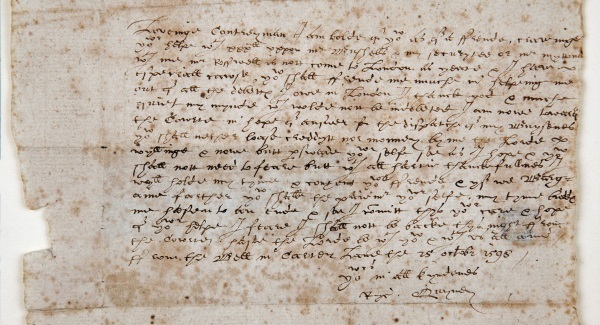 Loveinge Contreyman I am bolde of yow as of a ffrende, craveinge
yowr helpe wth xxxll vppon mr Bushells & my securytee or mr myttons
wth me mr Rosswell is nott come to London as yeate & I have
especiall cawse yow shall ffrende me muche in helpeing me
out of all the debttes I owe in London I thancke god & muche
quiet my mynde wch wolde nott be indebted I am nowe towardes
the Cowrte in hope of answer for the dispatche of my Buysenes
yow shall nether loase creddytt nor monney by me the Lorde
wyllinge & nowe butt perswade yowr selfe soe as I hope & yow
shall nott need to feare butt wth all hartie thanckefullnes I
wyll holde my tyme & content yowr ffrende & yf we Barg-
aine farther yow shalbe the paiemr yowr selfe my tyme biddes
me hasten to an ende & soe I comitt thys yowr care & hope
of yowr helpe I feare I shall nott be backe thys night ffrom
the Cowrte haste the Lorde be wth yow & wth us all amen
ffrom the Bell in Carter Lane the 25 october 1598
yowrs in all kyndenes
Ryc. Quyney